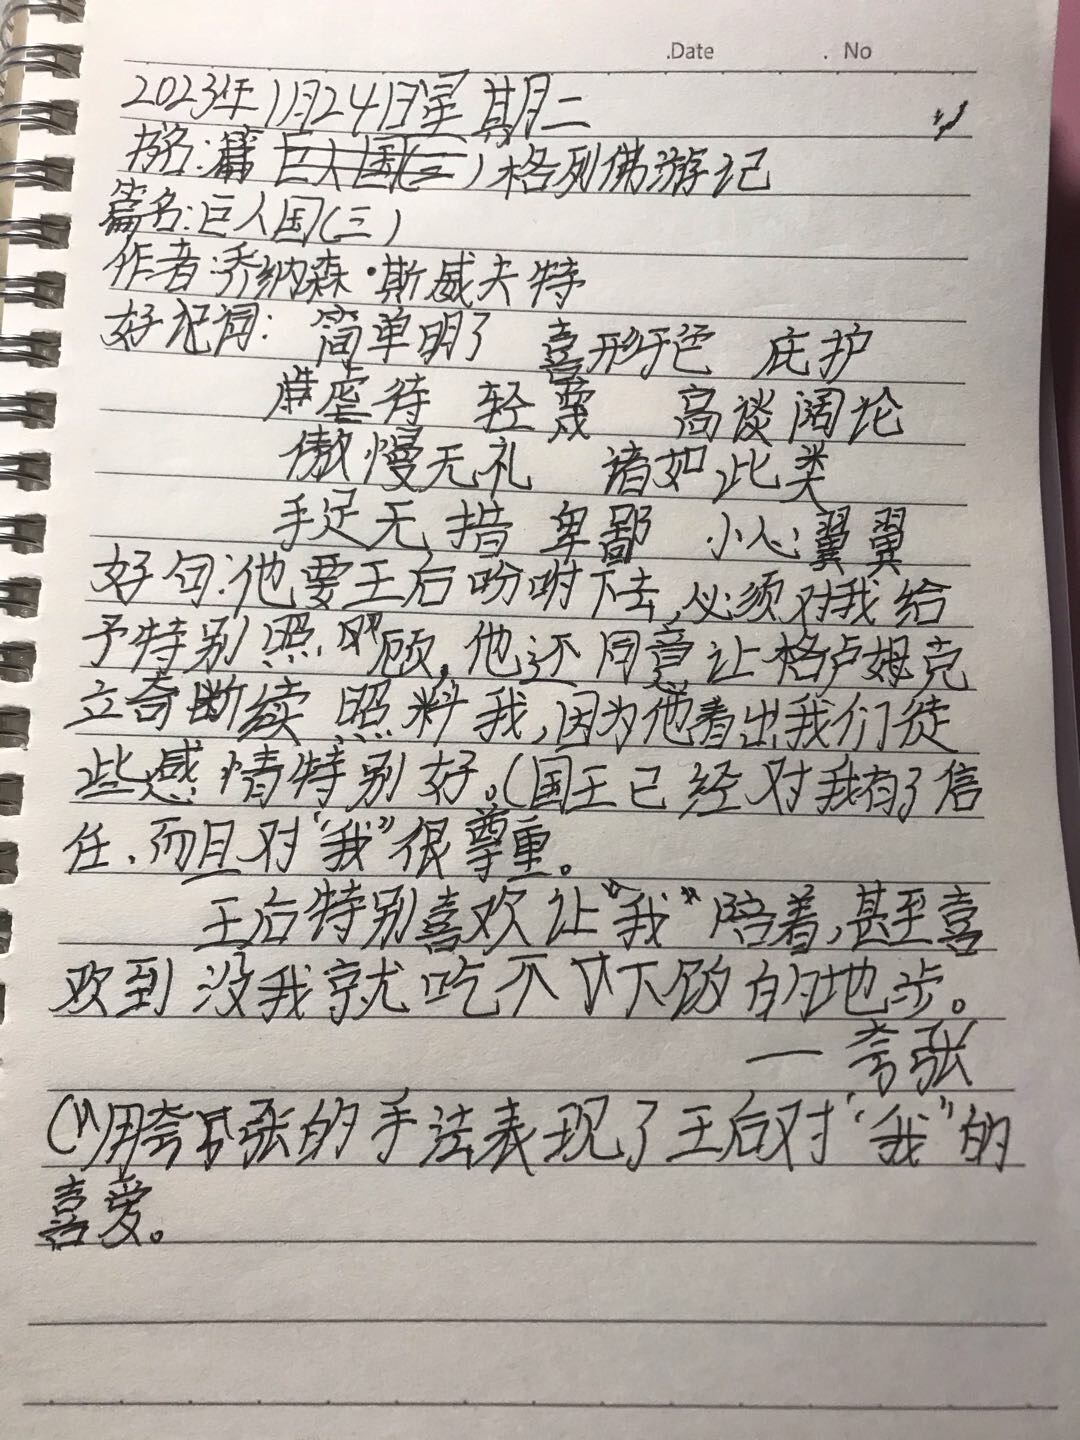 .Date . No
2023年11月24日星期二
书名:篇巨人国(三)格列佛游记
篇名:巨人国(三)
作者:乔纳森·斯威夫特
好记词: 简单明了 喜形于色 庇护
虐待 轻蔑 高谈阔论
傲慢无礼 诸如此类
手足无措 卑鄙 小心翼翼
好句:他要王后吩咐下去,必须对我给
予特别照顾,他还同意让格卢姆克
立奇断续照料我,因为他看出我们彼
此感情特别好。(国王已经对我有了信
任,而且对“我”很尊重。
王后特别喜欢让“我”陪着,甚至喜
欢到没我就吃不下饭的地步。
—夸张
(用夸张的手法表现了王后对“我”的
喜爱。